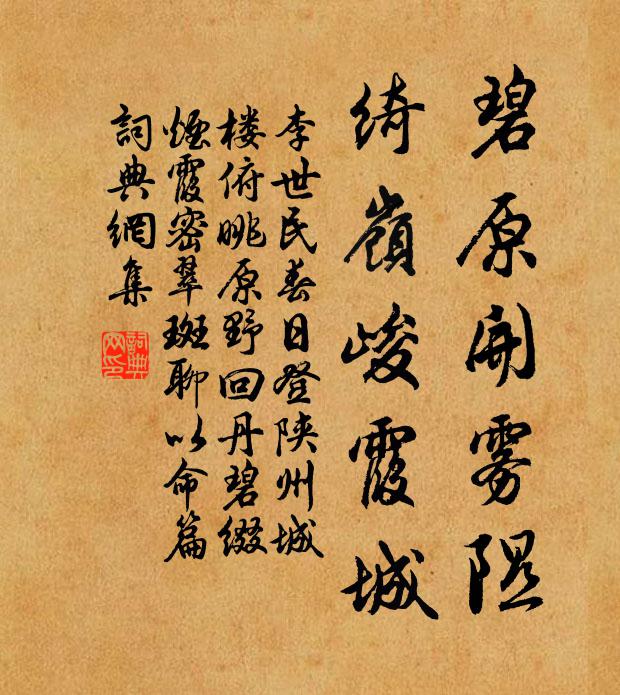 碧原開雾隰
绮嶺峻霞城
李世民春日登陕州城
楼俯眺原野回丹碧缀
烟霞密翠斑聊以命篇
詞典網集
詞典網印